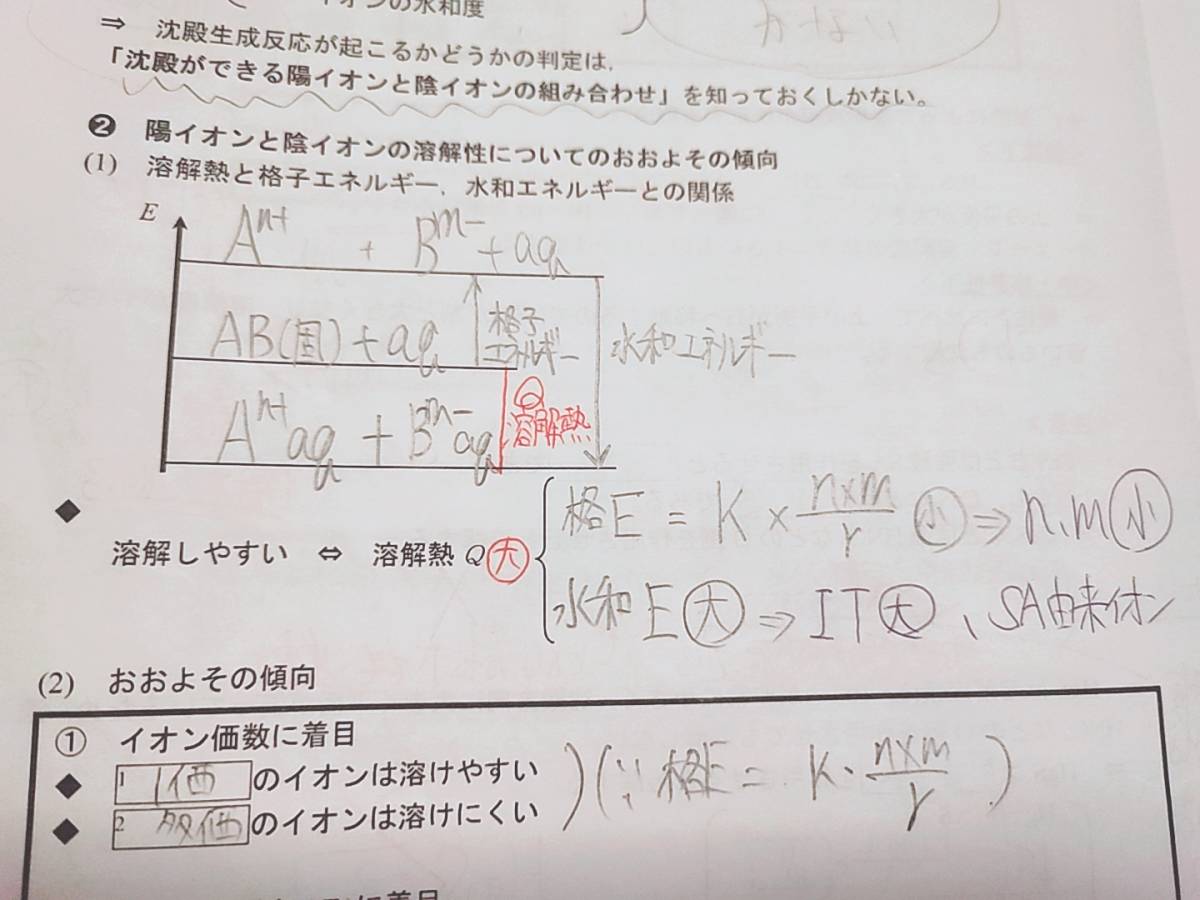 イオンの水和度
⇒ 沈殿生成反応が起こるかどうかの判定は,
「沈殿ができる陽イオンと陰イオンの組み合わせ」を知っておくしかない。
❷ 陽イオンと陰イオンの溶解性についてのおおよその傾向
(1) 溶解熱と格子エネルギー, 水和エネルギーとの関係
E
Aⁿ⁺ + Bᵐ⁻ + aq
AB(固) + aq
格子
エネルギー
水和エネルギー
Q
溶解熱
Aⁿ⁺aq + Bᵐ⁻aq
◆
格E = K × n×m/r 小 ⇒ n、m 小
溶解しやすい ⇔ 溶解熱 Q 大
水和E 大 ⇒ IT 大、SA由来イオン
(2) おおよその傾向
① イオン価数に着目
◆ 1 1価 のイオンは溶けやすい
◆ 2 多価 のイオンは溶けにくい
(∵ 格E = K・n×m/r)
に着目